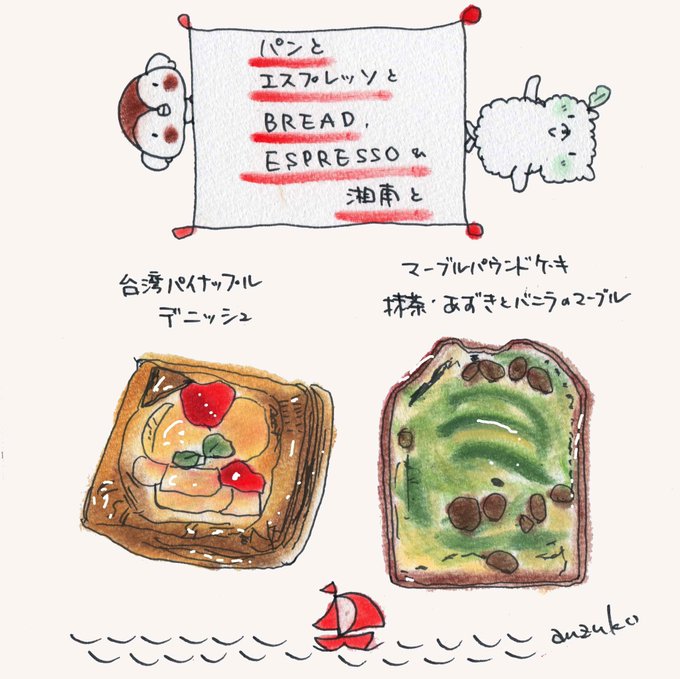 パンと
エスプレッソと
BREAD,
ESPRESSO &
湘南と
台湾パイナップル
デニッシュ
マーブルパウンドケーキ
抹茶・あずきとバニラのマーブル
auzuko